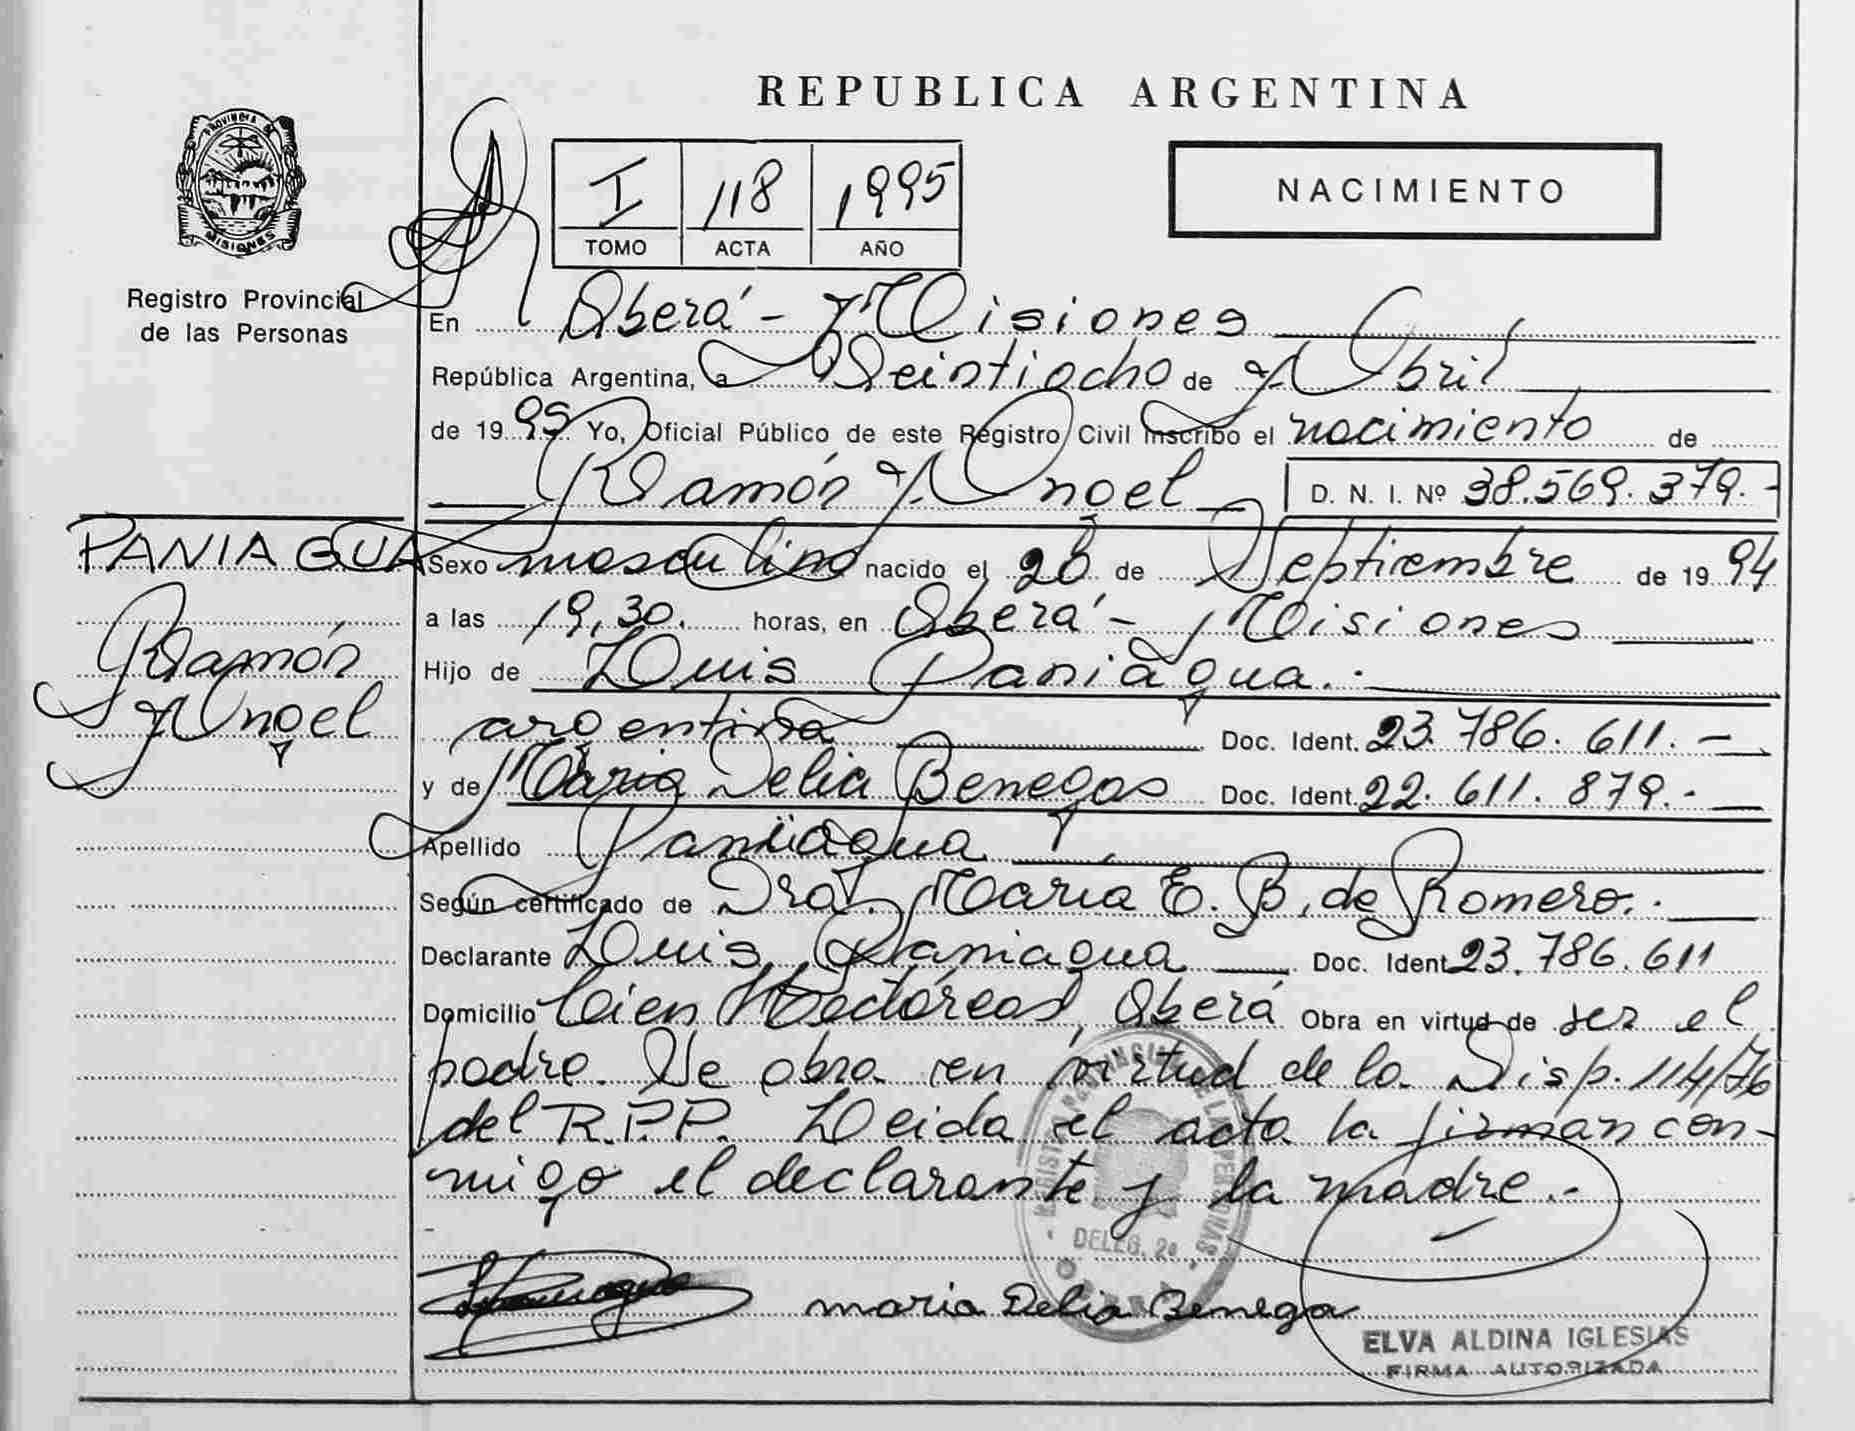 REPUBLICA ARGENTINA
PROVINCIA DE
MISIONES
Registro Provincial
de las Personas
I 118 1995
TOMO ACTA AÑO
NACIMIENTO
En Oberá - Misiones
República Argentina, a Veintiocho de Abril
de 1995 Yo, Oficial Público de este Registro Civil inscribo el nacimiento de
Ramón Angel D. N. I. Nº 38.569.379.-
PANIAGUA
Ramón
Angel
Sexo masculino nacido el 26 de Septiembre de 1994
a las 19,30. horas, en Oberá - Misiones
Hijo de Luis Paniagua.-
argentina Doc. Ident. 23.786.611.-
y de Maria Delia Benegas Doc. Ident. 22.611.879.-
Apellido Paniagua
Según certificado de Dra. Maria E. B. de Romero.-
Declarante Luis Paniagua Doc. Ident. 23.786.611
Domicilio Cien Hectáreas, Oberá Obra en virtud de ser el
padre. Se obra en virtud de la Disp. 114/76
del R.P.P. Leida el acta la firman con-
migo el declarante y la madre.-
DELEG. 2a
maria Delia Benega
ELVA ALDINA IGLESIAS
FIRMA AUTORIZADA